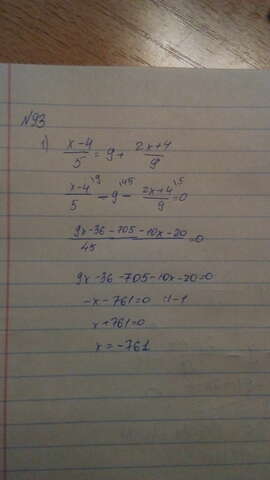 №93
1) x-4/5 = 9 + 2x+4/9
x-4/5 \9 - 9 \45 - 2x+4/9 \5 = 0
9x-36-705-10x-20/45 = 0
9x-36-705-10x-20=0
-x-761=0 :(-1
x+761=0
x=-761